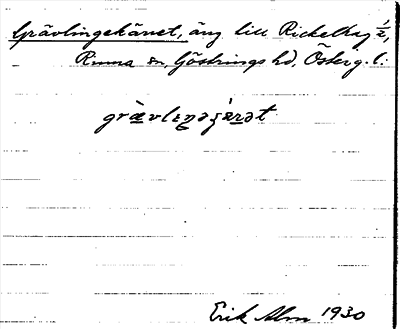 Grävlingekärret, äng till Rickelhag ½,
Rinna sn, Göstrings hd, Österg. l:
grævlıŋəɕærət
Erik Alm 1930